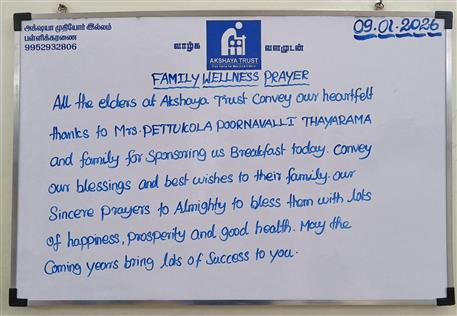 அக்ஷயா முதியோர் இல்லம்
பள்ளிக்கரணை
9952932806
வாழ்க வளமுடன்
AKSHAYA TRUST
09.01.2026
FAMILY WELLNESS PRAYER
All the elders at Akshaya Trust Convey our heartfelt
thanks to Mrs. PETTUKOLA POORNAVALLI THAYARAMA
and family for Sponsoring us Breakfast today. Convey
our blessings and best wishes to their family. our
Sincere Prayers to Almighty to bless them with lots
of happiness, Prosperity and good health. May the
Coming years bring lots of Success to you.